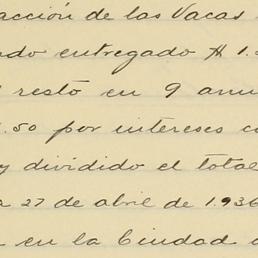 acción de las Vacas
do entregado $ 1.
resto en 9 anu
.50 por intereses co
y dividido el total
a 27 de abril de 1.936
en la Ciudad